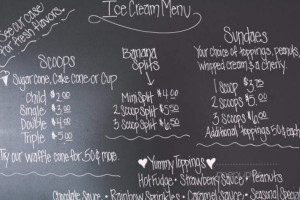 See our case
for fresh flavors.
Ice Cream Menu
Scoops
Sugar cone, Cake cone or Cup
Child $2.00
Single $3.00
Double $4.00
Triple $5.00
Try our waffle cone for 50¢ more.
Banana
Splits
Mini Split $4.00
2 Scoop Split $5.50
3 Scoop Split $6.50
Sundaes
Your choice of toppings, peanuts,
whipped cream & a cherry.
1 scoop $3.75
2 scoops $5.00
3 scoops $6.00
Additional toppings 50¢ each
Yummy Toppings
Hot Fudge • Strawberry Sauce • Peanuts
Chocolate Sauce • Rainbow Sprinkles • Caramel Sauce • Seasonal Special